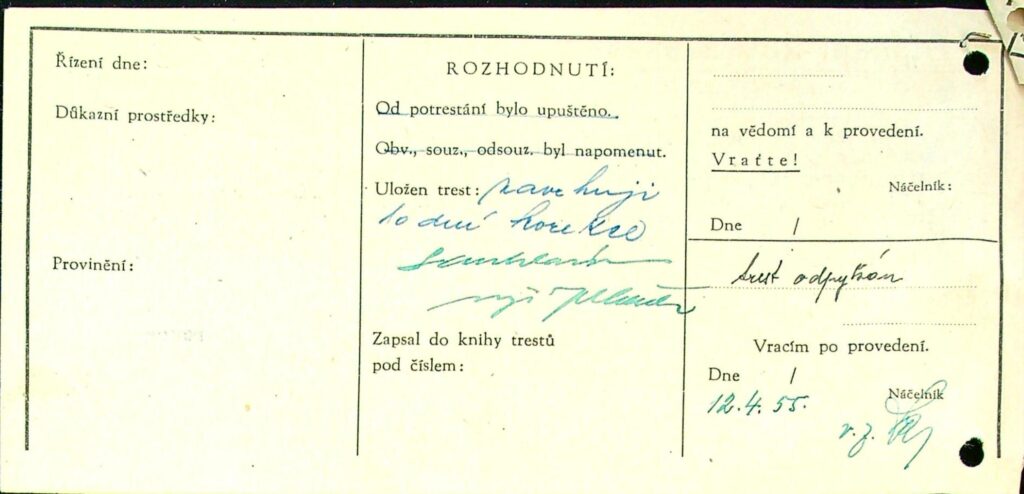 Řízení dne:
Důkazní prostředky:
Provinění:
ROZHODNUTÍ:
Od potrestání bylo upuštěno.
Obv., souz., odsouz. byl napomenut.
Uložen trest: navrhuji
10 dní korekce
Zapsal do knihy trestů
pod číslem:
na vědomí a k provedení.
Vraťte!
Náčelník:
Dne /
trest odpykán
Vracím po provedení.
Dne /
12.4.55.
Náčelník
v.z.